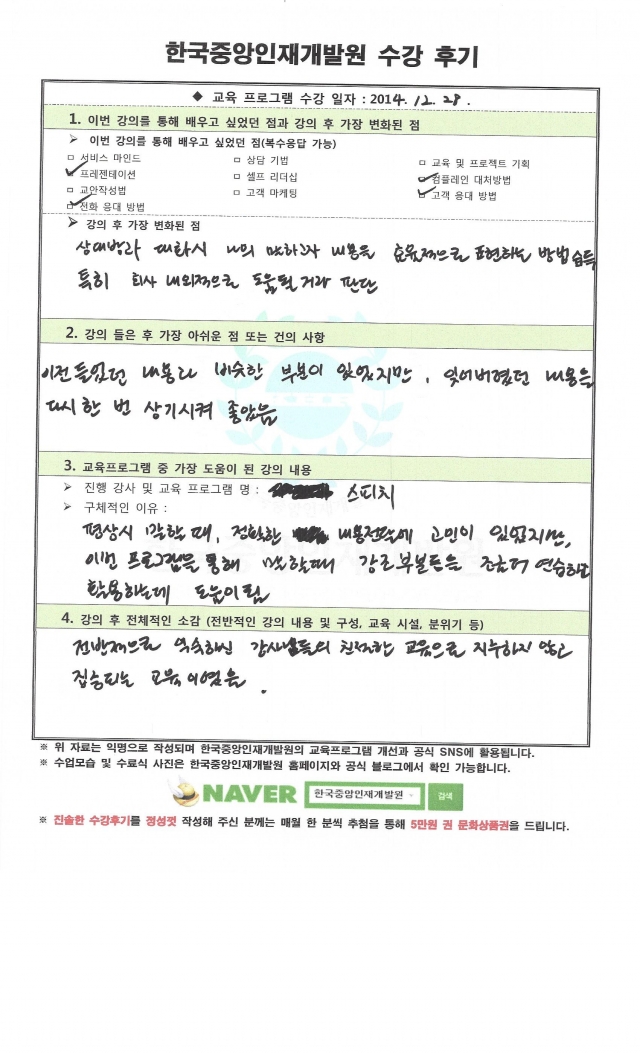 한국중앙인재개발원 수강 후기
◆ 교육 프로그램 수강 일자 : 2014. 12. 28.
1. 이번 강의를 통해 배우고 싶었던 점과 강의 후 가장 변화된 점
➢ 이번 강의를 통해 배우고 싶었던 점(복수응답 가능)
□ 서비스 마인드 □ 상담 기법 □ 교육 및 프로젝트 기획
□ 프레젠테이션 □ 셀프 리더십 □ 컴플레인 대처방법
□ 교안작성법 □ 고객 마케팅 □ 고객 응대 방법
□ 전화 응대 방법
➢ 강의 후 가장 변화된 점
상대방과 대화시 나의 말하고자 내용을 효율적으로 표현하는 방법 습득
특히 회사 내외적으로 도움될거라 판단
2. 강의 들은 후 가장 아쉬운 점 또는 건의 사항
이전 들었던 내용과 비슷한 부분이 있었지만, 잊어버렸던 내용을
다시 한 번 상기시켜 좋았음
3. 교육프로그램 중 가장 도움이 된 강의 내용
➢ 진행 강사 및 교육 프로그램 명 : 스피치
➢ 구체적인 이유 :
평상시 말할때, 정확한 내용전달에 고민이 있었지만,
이번 프로그램을 통해 말할때 강조부분등을 조금더 연습하고
활용하는데 도움이됨
4. 강의 후 전체적인 소감 (전반적인 강의 내용 및 구성, 교육 시설, 분위기 등)
전반적으로 익숙하신 강사님들의 친절한 교육으로 지루하지 않고
집중되는 교육이었음.
※ 위 자료는 익명으로 작성되며 한국중앙인재개발원의 교육프로그램 개선과 공식 SNS에 활용됩니다.
※ 수업모습 및 수료식 사진은 한국중앙인재개발원 홈페이지와 공식 블로그에서 확인 가능합니다.
NAVER 한국중앙인재개발원 검색
※ 진솔한 수강후기를 정성껏 작성해 주신 분께는 매월 한 분씩 추첨을 통해 5만원 권 문화상품권을 드립니다.